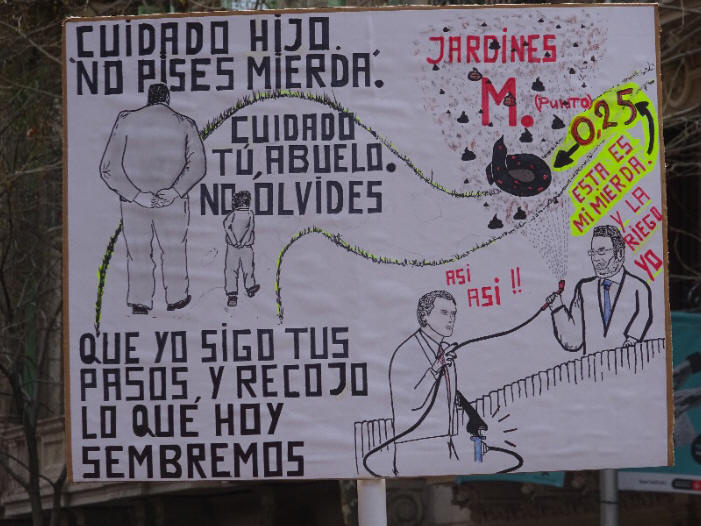 CUIDADO HIJO.
'NO PISES MIERDA'.
CUIDADO
TÚ, ABUELO.
NO, OLVIDES
QUE YO SIGO TUS
PASOS, Y RECOJO
LO QUÉ HOY
SEMBREMOS
JARDINES
M. (PUNTO)
0,25
ESTA ES
MI MIERDA.
Y LA
RIEGO
YO
ASI
ASI !!